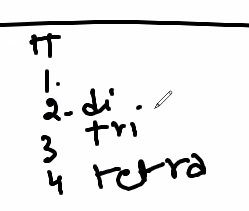 π
1.
2. di.
3 tri
4 tetra